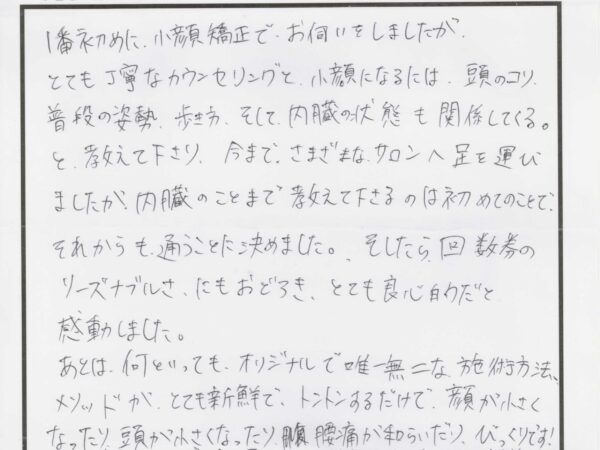 1番初めに、小顔矯正で、お伺いをしましたが、
とても丁寧なカウンセリングと、小顔になるには、頭のコリ、
普段の姿勢、歩き方、そして、内臓の状態も関係してくる。
と、教えて下さり、今まで、さまざまな、サロンへ足を運び
ましたが、内臓のことまで教えて下さるのは初めてのことで、
それからも、通うことに決めました。、そしたら、回数券の
リーズナブルさ、にもおどろき、とても良心的だと
感動しました。
あとは、何といっても、オリジナルで唯一無二な、施術方法、
メソッドが、とても新鮮で、トントンするだけで、顔が小さく
なったり、頭が小さくなったり、腰痛が和らいだり、びっくりです!